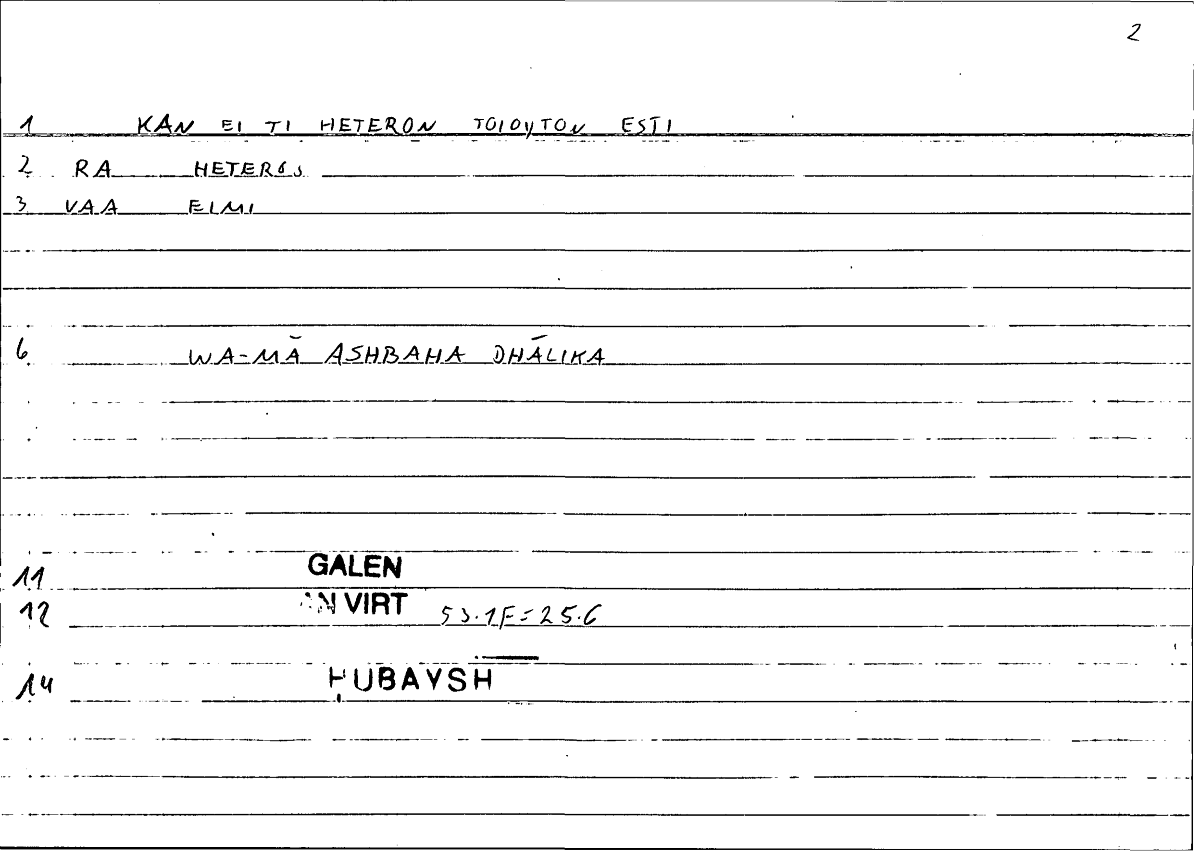 2
1 KAN EI TI HETERON TOIOYTON ESTI
2 RA HETEROS
3 VAA EIMI
6 WA-MĀ ASHBAHA DHĀLIKA
11 GALEN
12 AN VIRT 53.1F=25.6
14 ḤUBAYSH